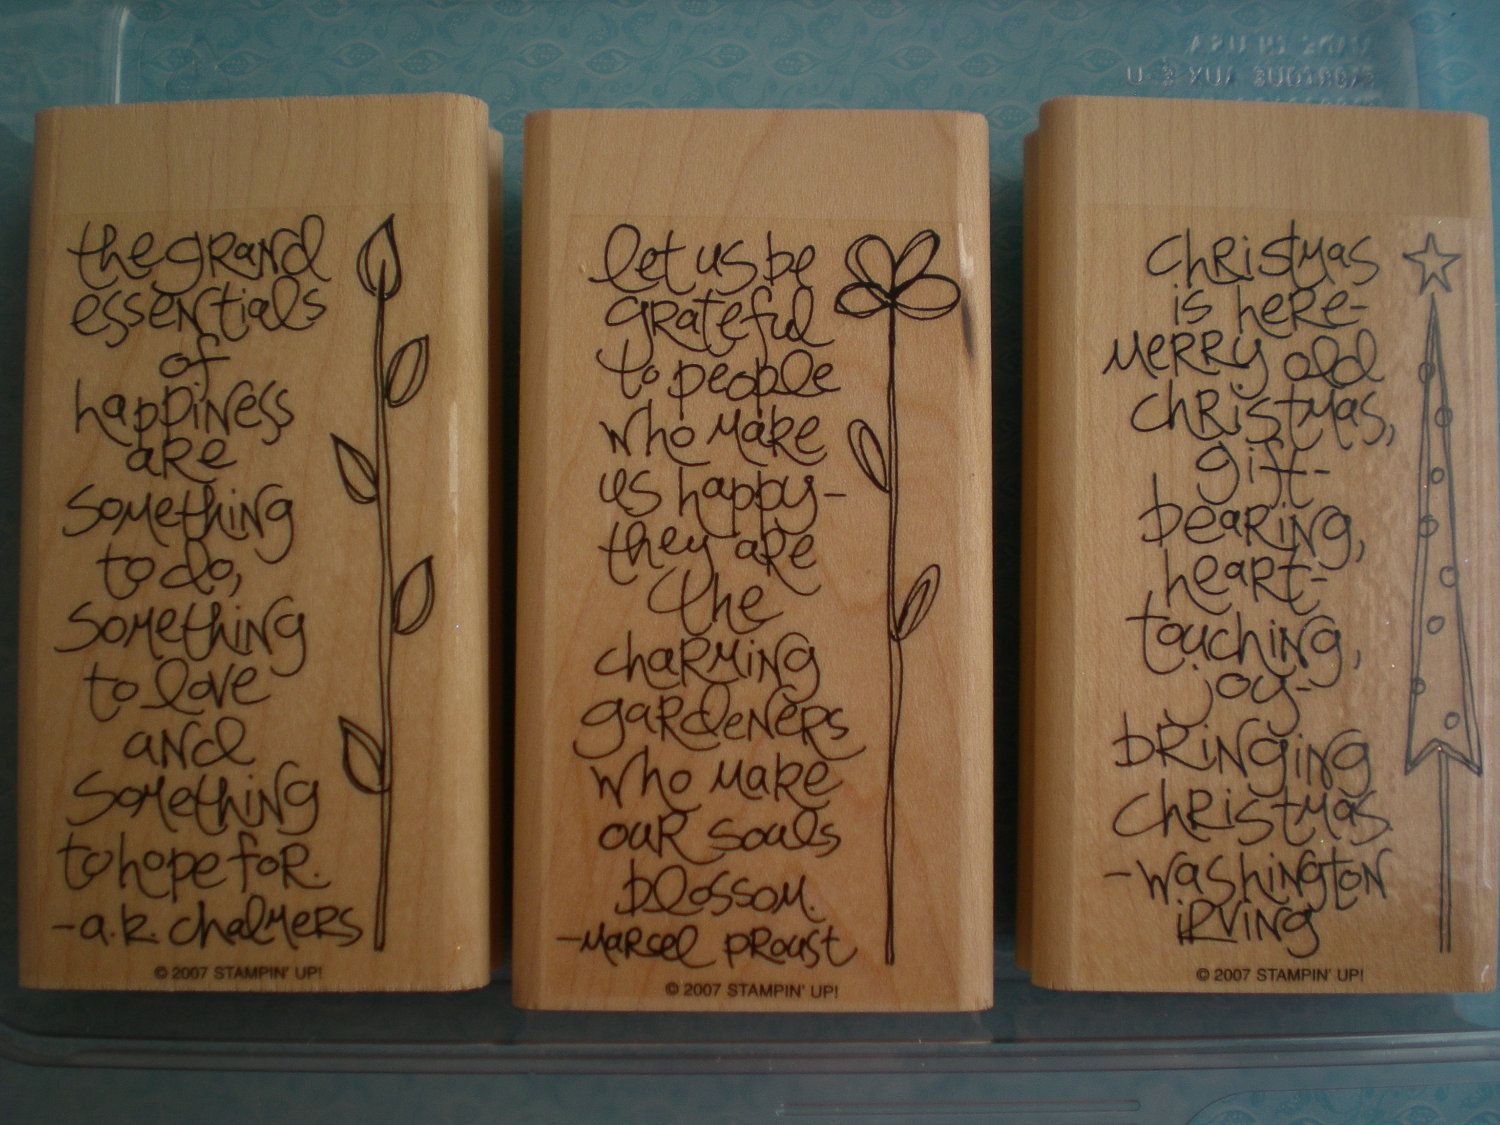 the grand
essentials
of
happiness
are
something
to do,
something
to love
and
something
to hope for.
-a.k. chalmers
© 2007 STAMPIN' UP!
let us be
grateful
to people
who make
us happy-
they are
the
charming
gardeners
who make
our souls
blossom.
-Marcel Proust
© 2007 STAMPIN' UP!
Christmas
is here-
Merry old
Christmas,
gift-
bearing,
heart-
touching,
joy-
bringing
Christmas.
-Washington
irving
© 2007 STAMPIN' UP!
MADE IN USA